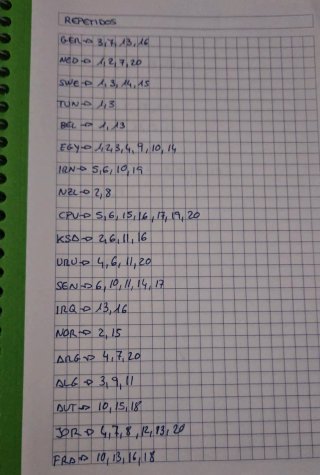 REPETIDOS
GER→ 3, 7, 13, 16
NED→ 1, 2, 7, 20
SWE→ 1, 3, 14, 15
TUN→ 1, 3
BEL→ 1, 13
EGY→ 1, 2, 3, 4, 9, 10, 14
IRN→ 5, 6, 10, 19
NZL→ 2, 8
CPV→ 5, 6, 15, 16, 17, 19, 20
KSA→ 2, 6, 11, 16
URU→ 4, 6, 11, 20
SEN→ 6, 10, 11, 14, 17
IRQ→ 13, 16
NOR→ 2, 15
ARG→ 4, 7, 20
ALG→ 3, 9, 11
AUT→ 10, 15, 18
JOR→ 4, 7, 8, 12, 13, 20
FRA→ 10, 13, 16, 18